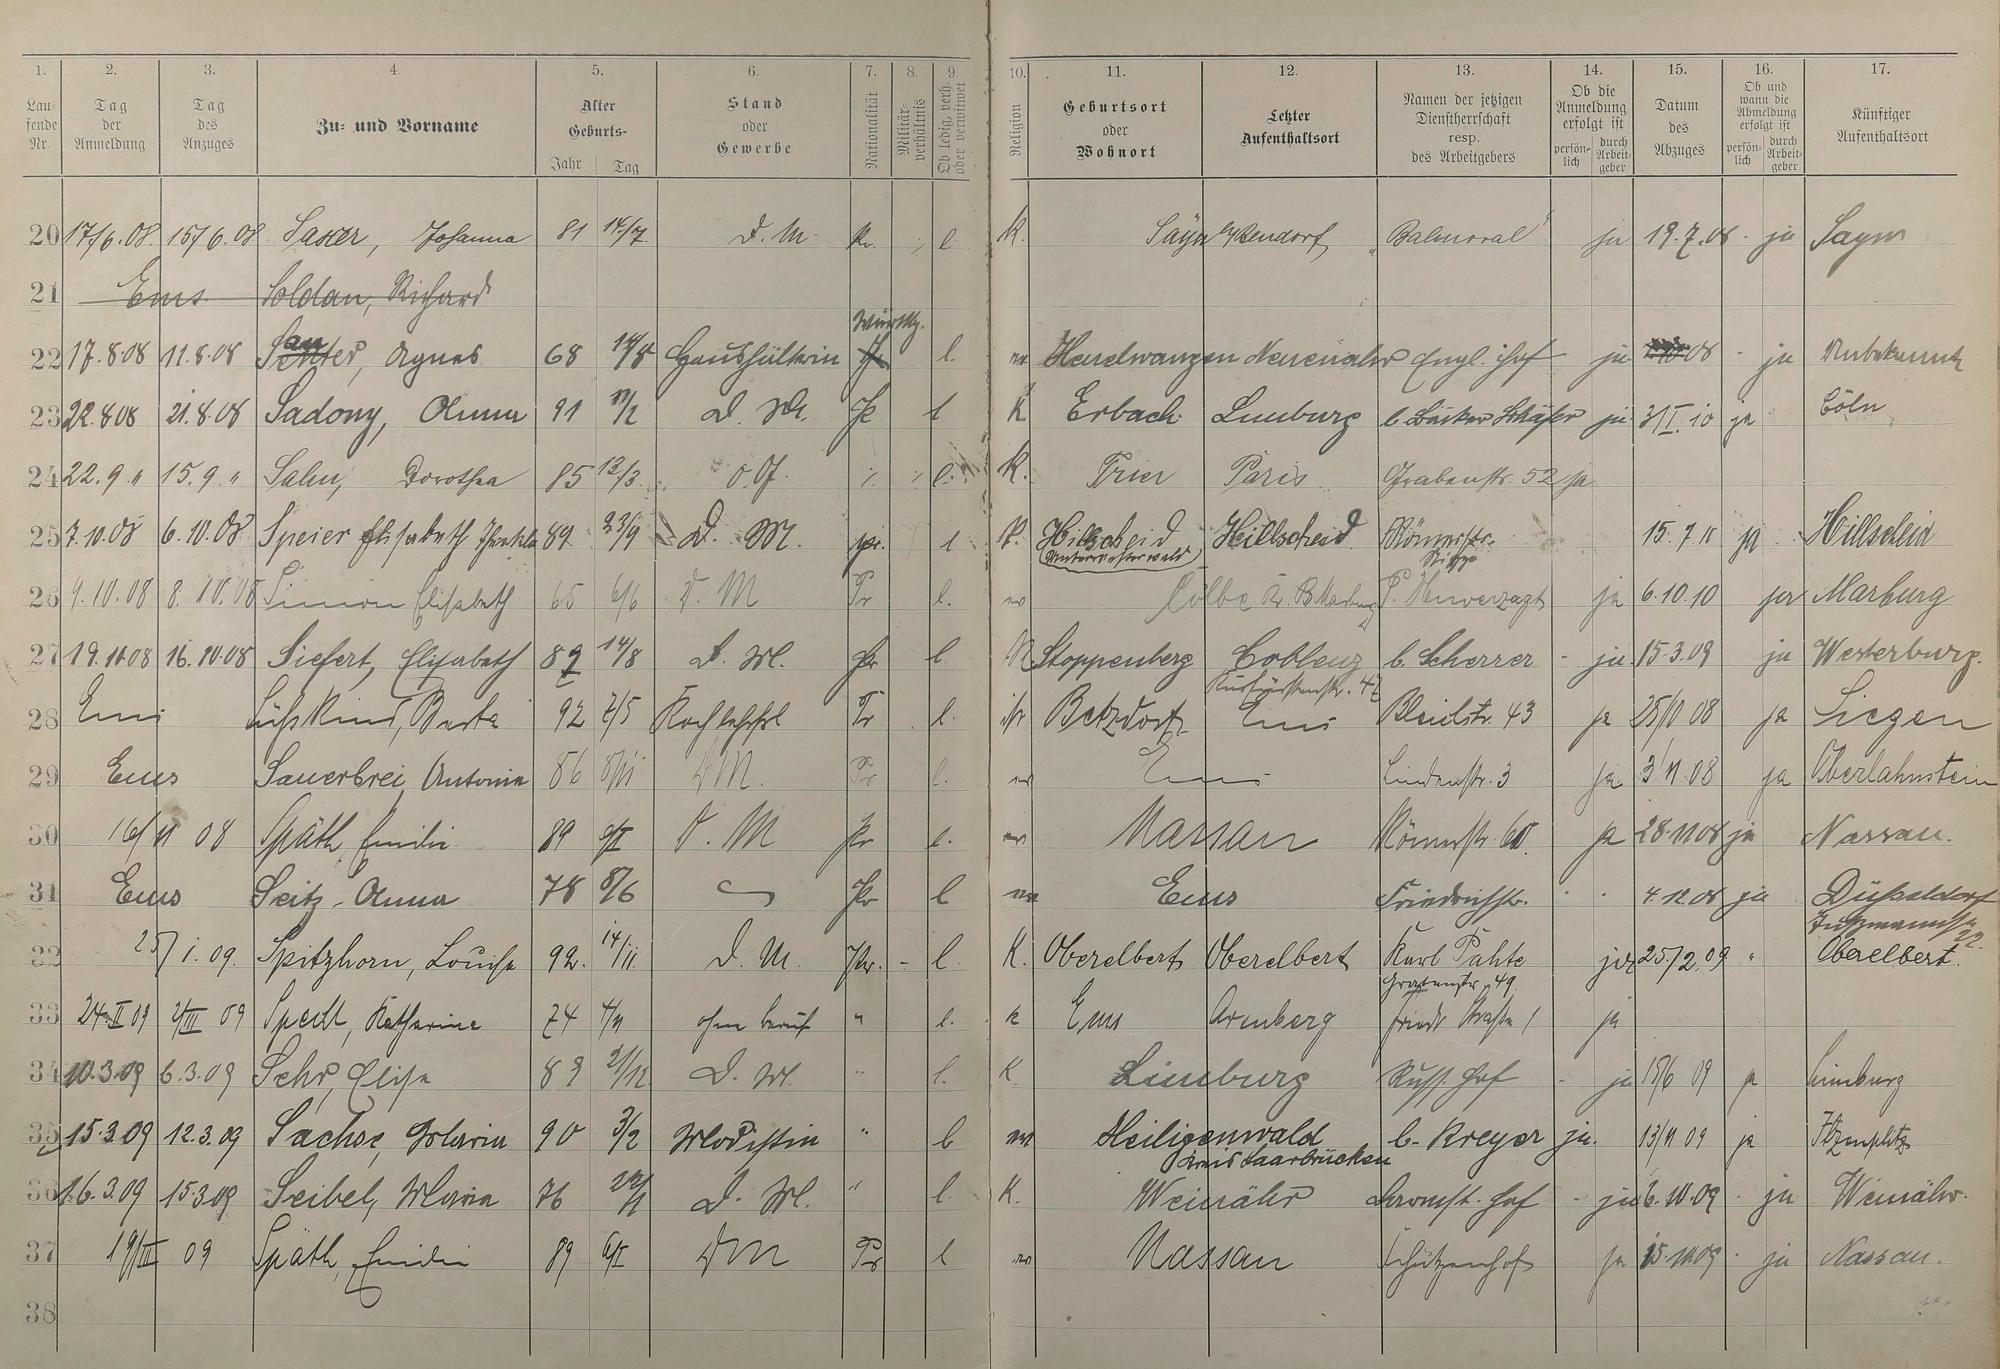 1. 2. 3. 4. 5. 6. 7. 8. 9. 10. 11. 12. 13. 14. 15. 16. 17.
Lau-fende Nr. Tag der Anmeldung Tag des Anzuges Zu- und Vorname Alter Geburts- Jahr Tag Stand oder Gewerbe Nationalität Militär-verhältnis Ob ledig, verh. oder verwitwet Religion Geburtsort oder Wohnort Letzter Aufenthaltsort Namen der jetzigen Dienstherrschaft resp. des Arbeitgebers Ob die Anmeldung erfolgt ist persön-lich durch Arbeit-geber Datum des Abzuges Ob und wann die Abmeldung erfolgt ist persön-lich durch Arbeit-geber Künftiger Aufenthaltsort
20 17/6.08. 15/6.08 Johanna 81 14/7 D. M. Pr. l. K. Sayn b/Bendorf „Balmoral" ja 19.7.08 ja Sayn
21 Ems Soldan, Richard
Württbg.
22 17.8.08 11.8.08 Agnes 68 14/8 Haushälterin l. ev Neuenahr Engl. Hof ja 08 ja Unbekannt
23 22.8.08 21.8.08 Sadony, Anna 91 D. M. Pr l K. Erbach Limburg b. Bäcker Schäfer ja 31/I.10 ja Cöln
24 22.9. " 15.9. " Dorothea 85 13/3 o. G. l. K. Trier Paris Grabenstr. 52 ja
25 7.10.08 6.10.08 Speier Elisabeth 89 23/9 D. M. pr. l K. Hillscheid Hillscheid Römerstr. 15.7 ja Hillscheid
Unterwesterwald
26 9.10.08 8.10.08 Simon Elisabeth 65 6/6 D. M Pr l. ev Cölbe P. Unverzagt ja 6.10.10 ja Marburg
27 19.10.08 16.10.08 Siefert, Elisabeth 14/8 D. M. Pr l K Stoppenberg Coblenz b. Scherrer ja 15.3.09 ja Westerburg.
28 Ems Süßkind, Berta 92 7/5 Kochlehrl Pr l. isr Betzdorf Ems Bleichstr. 43 ja 25/ 08 ja Siegen
29 Ems Sauerbrei, Antonie 86 8/11 DM. Pr l. ev Ems Lindenstr. 3 ja 3/11.08 ja Oberlahnstein
30 16/11 08 Späth, Emilie 89 D. M Pr l. ev Nassau Römerstr. ja 28.11.08 ja Nassau.
31 Ems Seitz, Anna 78 8/6 Pr l ev Ems Friedrichstr. 4.12.08 ja Düsseldorf
32 25/1.09. Spitzhorn, Louise 92. 14/11. D. M. Pr. - l K. Oberelbert Oberelbert Karl ja 25./2.09 " Oberelbert.
Grabenstr. 49.
33 24.II 09 2/III 09 Specht, Katharine 74 ohne beruf " l. k Ems Arenberg Friedr Straße 1 ja
34 10.3.09 6.3.09 Elise D. M. " l. K. Limburg Russ. Hof - ja 09 ja Limburg
35 15.3.09 12.3.09 Sachse, Maria 90 3/2 Modistin " ev Heiligenwald b. Kreyer ja. 13/11 09 ja
Kreis Saarbrücken
36 16.3.09 15.3.09 Seibel, Maria 76 D. M. " l. K. Weinähr Hof - ja 6.10.09 ja Weinähr.
37 19/III 09 Späth, Emilie 89 DM Pr l ev Nassau Schützenhof ja 15.10.09 ja Nassau.
38